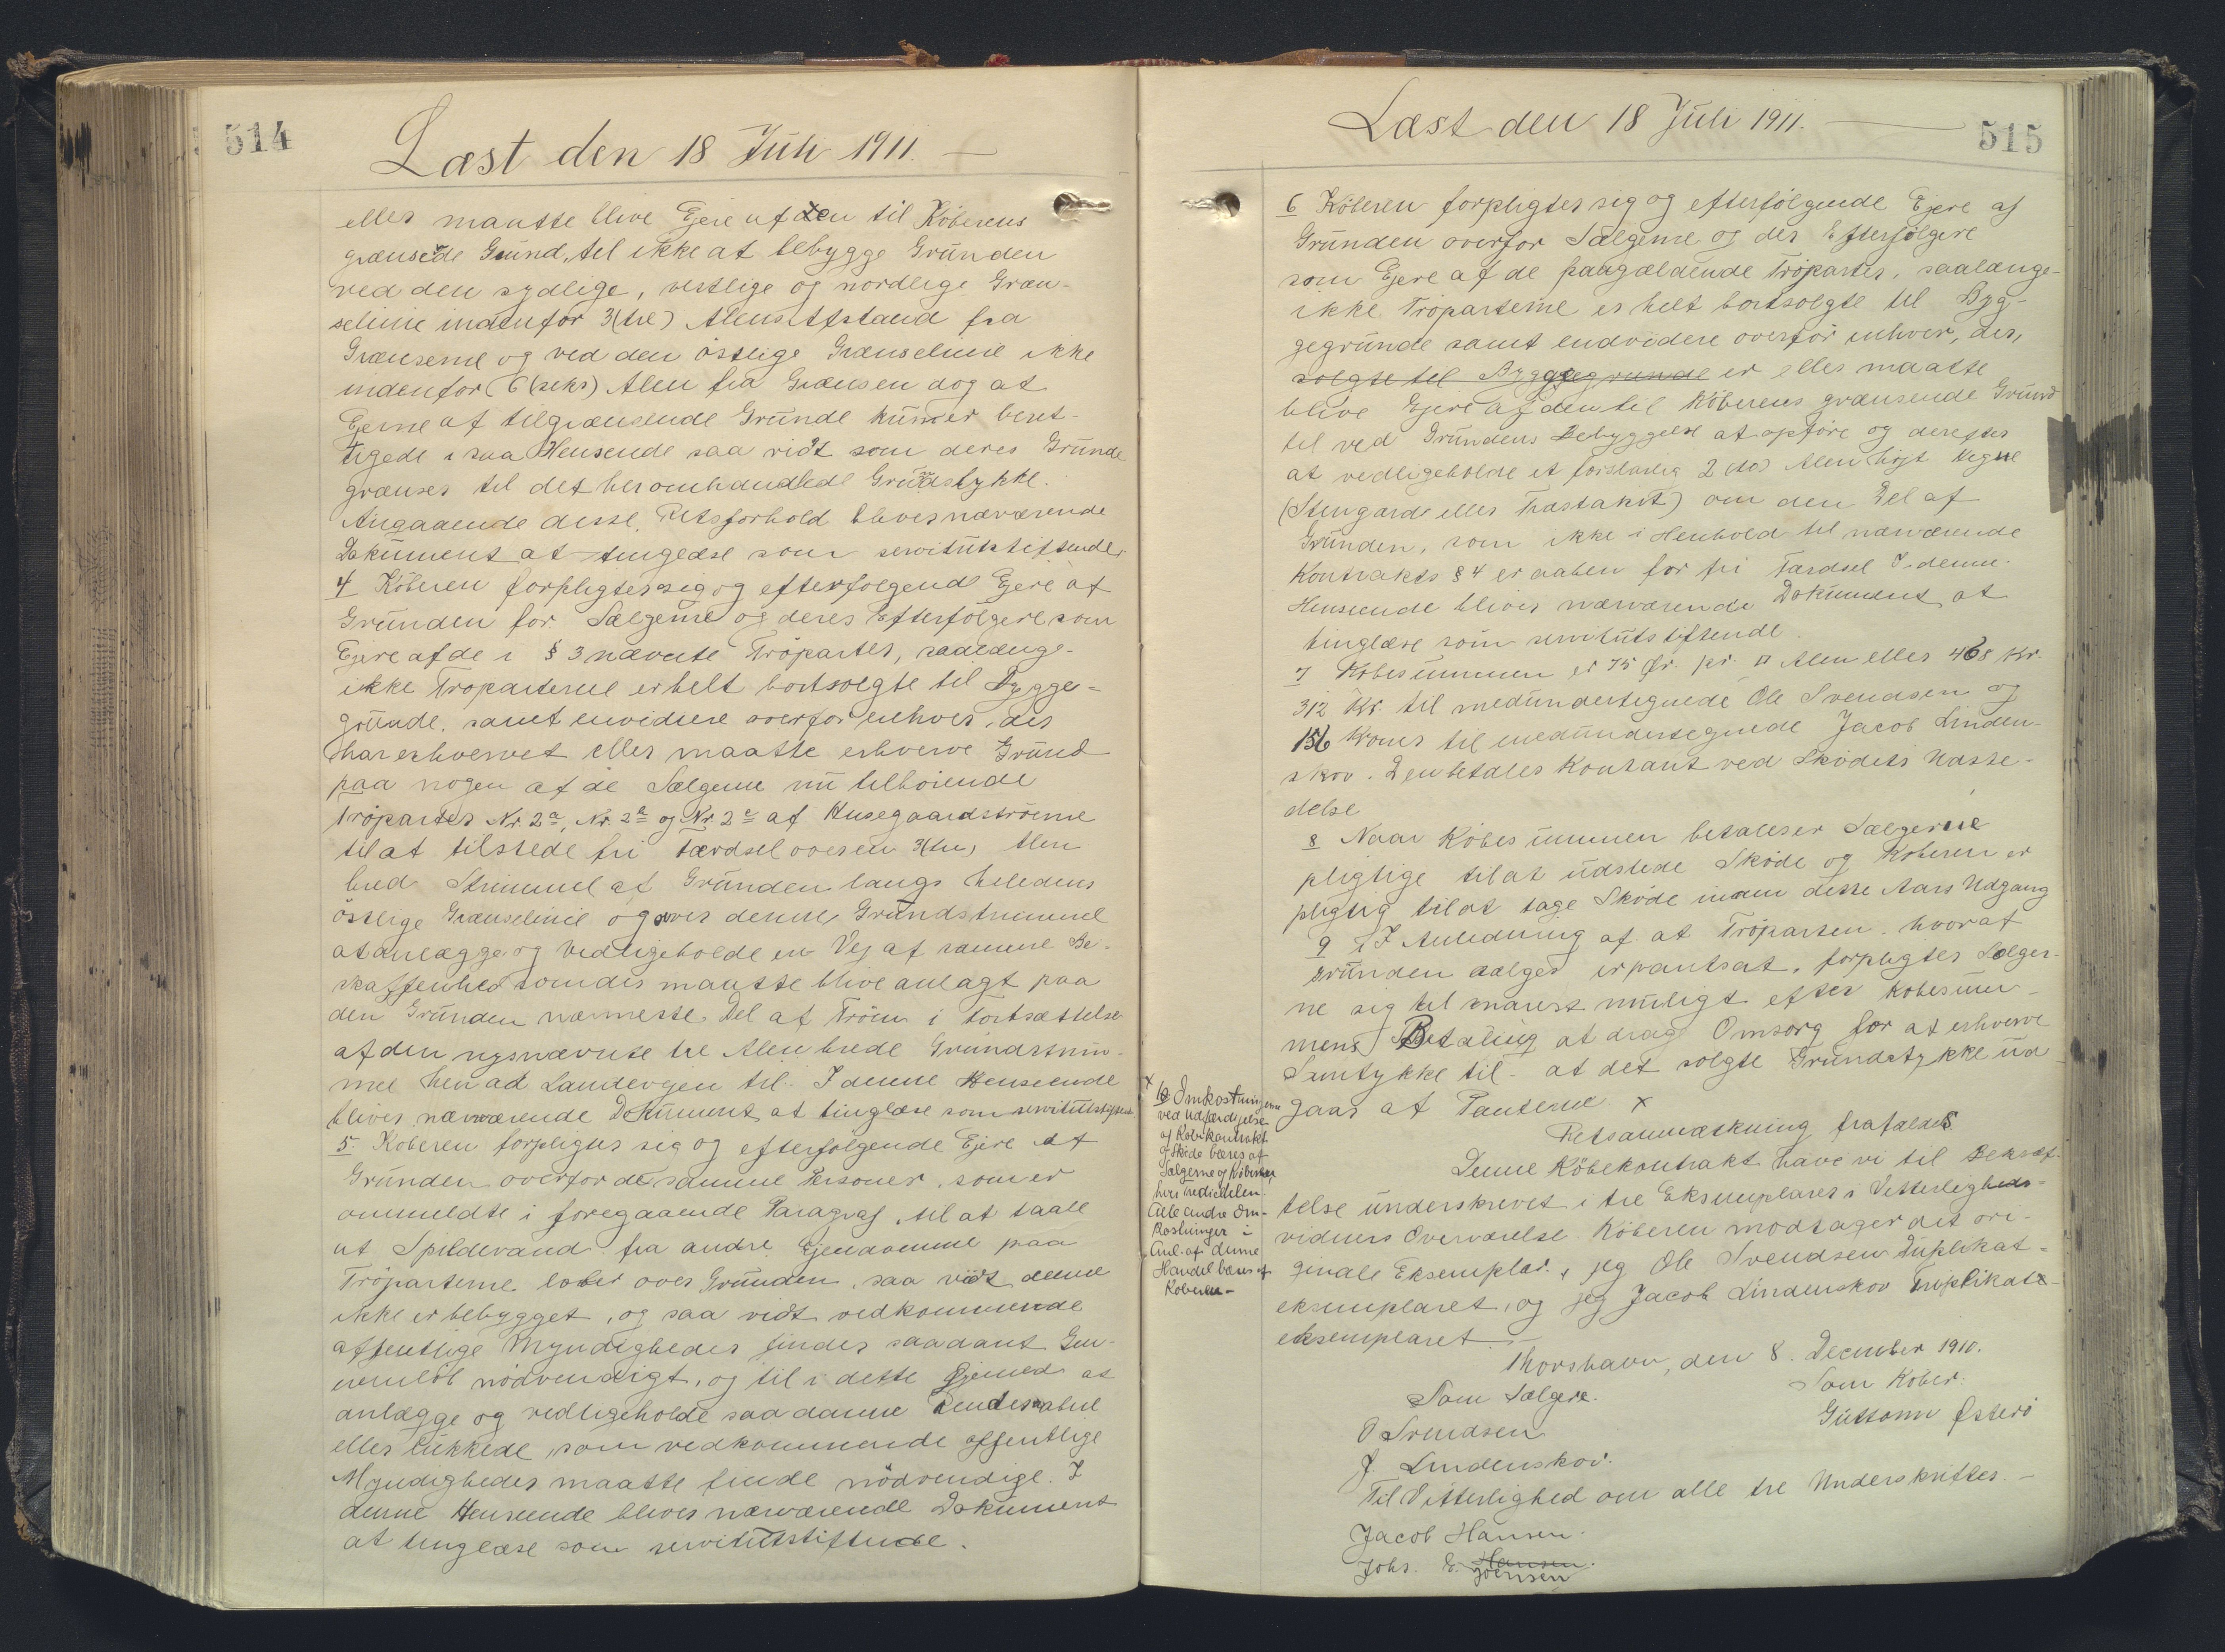 514
Læst den 18 Juli 1911. —
eller maatte blive Ejere af den til Köberens
grænsede Grund, til ikke at bebygge Grunden
ved den sydlige, vestlige og nordlige Græn-
selinie indenfor 3(tre) Alens Afstand fra
Grænserne og ved den östlige Grænselinie ikke
indenfor 6 (seks) Alen fra Grænsen dog at
Ejerne af tilgrænsende Grunde kun er beret-
tigede i saa Henseende saa vidt som deres Grunde
grænser til det heromhandlede Grundstykke.
Angaaende disse Retsforhold bliver nærværende
Dokument at tinglæse som servitutstiftende.
4 Köberen forpligter sig og efterfölgende Ejere af
Grunden for Sælgerne og deres Efterfölgere som
Ejere af de i § 3 nævnte Tröparter, saalænge-
ikke Tröparterne er helt bortsolgte til Bygge-
grunde, samt envidere overfor enhver, der
har erhvervet eller maatte erhverve Grund
paa nogen af de Sælgerne nu tilhörende
Tröparter Nr. 2a, Nr. 2b og Nr. 2c af Husegaardströerne
til at tilstede fri Færdsel over en 3(tre) Alen
bred Strimmel af Grunden langs heledens
östlige Grænselinie og over denne Grundstrimmel
at anlægge og vedligeholde en Vej af samme Be-
skaffenhed som der maatte blive anlagt paa
den Grunden nærmeste Del af Tröen i Fortsættelse
af den nysnævnte tre Alen brede Grundstrim-
mel hen ad Landevejen til. I denne Henseende
bliver nærværende Dokument at tinglæse som servitutstiftende
5. Köberen forpligter sig og efterfölgende Ejere af
Grunden overfor de samme Personer, som er
ommeldte i foregaaende Paragraf, til at taale
at Spildevand fra andre Ejendomme paa
Tröparterne löber over Grunden, saa vidt denne
ikke er bebygget, og saa vidt vedkommende
offentlige Myndigheder finder saadant Gen-
nemlöb nödvendigt, og til i dette Öjemed at
anlægge og vedligeholde saadanne Render aabne
eller lukkede, som vedkommende offentlige
Myndigheder maatte finde nödvendige. I
denne Henseende bliver nærværende Dokument
at tinglæse som servitutstiftende.
Læst den 18 Juli 1911. —
515
6 Köberen forpligter sig og efterfölgende Ejere af
Grunden overfor Sælgerne og der Efterfölgere
som Ejere af de paagældende Tröparter, saalænge-
ikke Tröparterne er helt bortsolgte til Byg-
gegrunde samt endvidere overför enhver, der,
solgte til Byggegrunde er eller maatte
blive Ejere af den til Köberens grænsende Grund
til ved Grundens Bebyggelse at opföre og derefter
at vedligeholde et forsvarlig 2 (to) Alen höjt Hegne
(Stengærde eller Træstakit) om den Del af
Grunden, som ikke i Henhold til nærværende
Kontrakts § 4 er aaben for fri Færdsel I denne
Henseende bliver nærværende Dokument at
tinglæse som servitutstiftende.
7 Köbesummen er 75 Ør. pr. □ Alen eller 468 Kr.
312 Kr. til medundertegnede Ole Svendsen og
156 Kroner til medundertegnede Jacob Linden-
skov. Den betales kontant ved Sködets Udste-
delse
8 Naar Köbesummen betales er Sælgerne
pligtige til at udstede Sköde og Köberen er
pligtig til at tage Sköde inden dette Aars Udgang
9 I Anledning af at Tröparten hvoraf
Grunden sælges er pantsat, forpligter Sælger-
ne sig til snarest muligt efter Köbesum-
mens Betaling at drage Omsorg for at erhverve
Samtykke til at det solgte Grundstykke ud-
gaar af Panterne x
x
10 Omkostningerne
ved Udfærdigelse
af Köbekontrakt
og Sköde bæres af
Sælgerne og Köberen
hver Halvdelen.
Alle andre Om-
kostninger i
Anl. af denne
Handel bæres af
Köberen —
Retsanmærkning frafaldes
Denne Köbekontrakt have vi til Bekræf-
telse underskrevet i tre Eksemplarer i Vitterligheds-
vidners Overværelse Köberen modtager det ori-
ginale Eksemplar, jeg Ole Svendsen Duplikat-
eksemplaret, og jeg Jacob Lindenskov Triplikat-
eksemplaret —
Thorshavn, den 8. December 1910.
Som Sælgere.
Som Köber.
O Svendsen
Guttorm Østerö
J. Lindenskov.
Til Vitterlighed om alle tre Underskrifter. —
Jacob Hansen.
Johs. E. Hansen.
Joensen